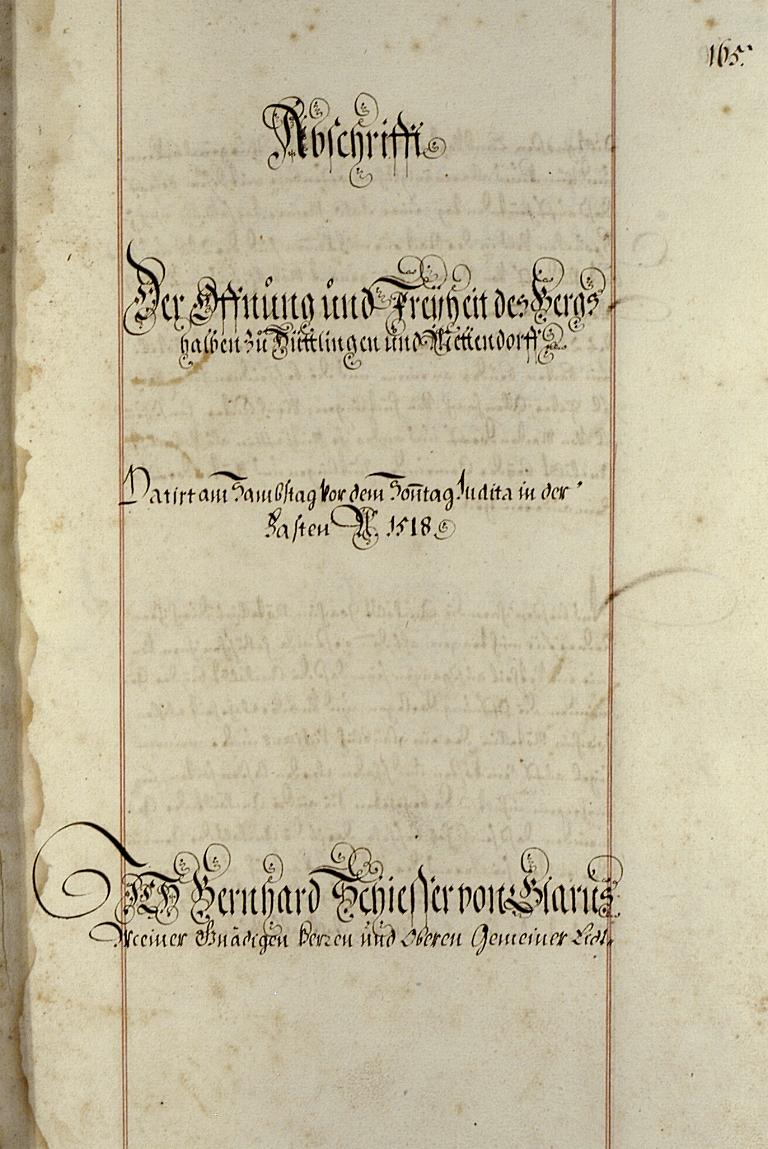 165.
Abschrifft
Der Offnung und Freyheit des Bergs
halben zů Hüttlingen und Mettendorff
Datirt am Sambstag vor dem Son̄tag Judita in der
Fasten A. 1518.
ICH Bernhard Schiesser von Glarus
Meiner Gnädigen Herren und Oberen Gemeiner Eidt-